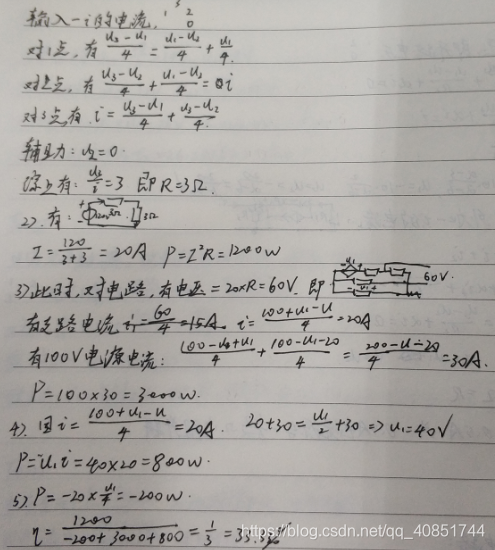 输入一i的电流, 1 3 2 0
对1点,有 (u₃-u₁)/4 = (u₁-u₂)/4 + u₁/4
对2点,有 (u₃-u₂)/4 + (u₁-u₂)/4 = i
对3点,有 i = (u₃-u₁)/4 + (u₃-u₂)/4
辅助力: u₂=0.
综上有: u₃/i = 3 即R=3Ω.
2). 有: 120V 3Ω 3Ω
I = 120/(3+3) = 20A P=I²R=1200W
3)此时, 对电路,有电压=20×R=60V. 即 u₁ 60V.
有支路电流i₁=60/4=15A. i=(100+u₁-u)/4=20A
有100V电源电流: (100-u+u₁)/4 + (100-u-20)/4 = (200-u-20)/4 =30A.
P=100×30=3000W.
4). 因i=(100+u₁-u)/4=20A. 20+30=u₁/2+30 => u₁=40V
P=u₁i=40×20=800W.
5). P=-20×u₁/4=-200W.
η=1200/(-200+3000+800)=1/3=33.3%
https://blog.csdn.net/qq_40851744